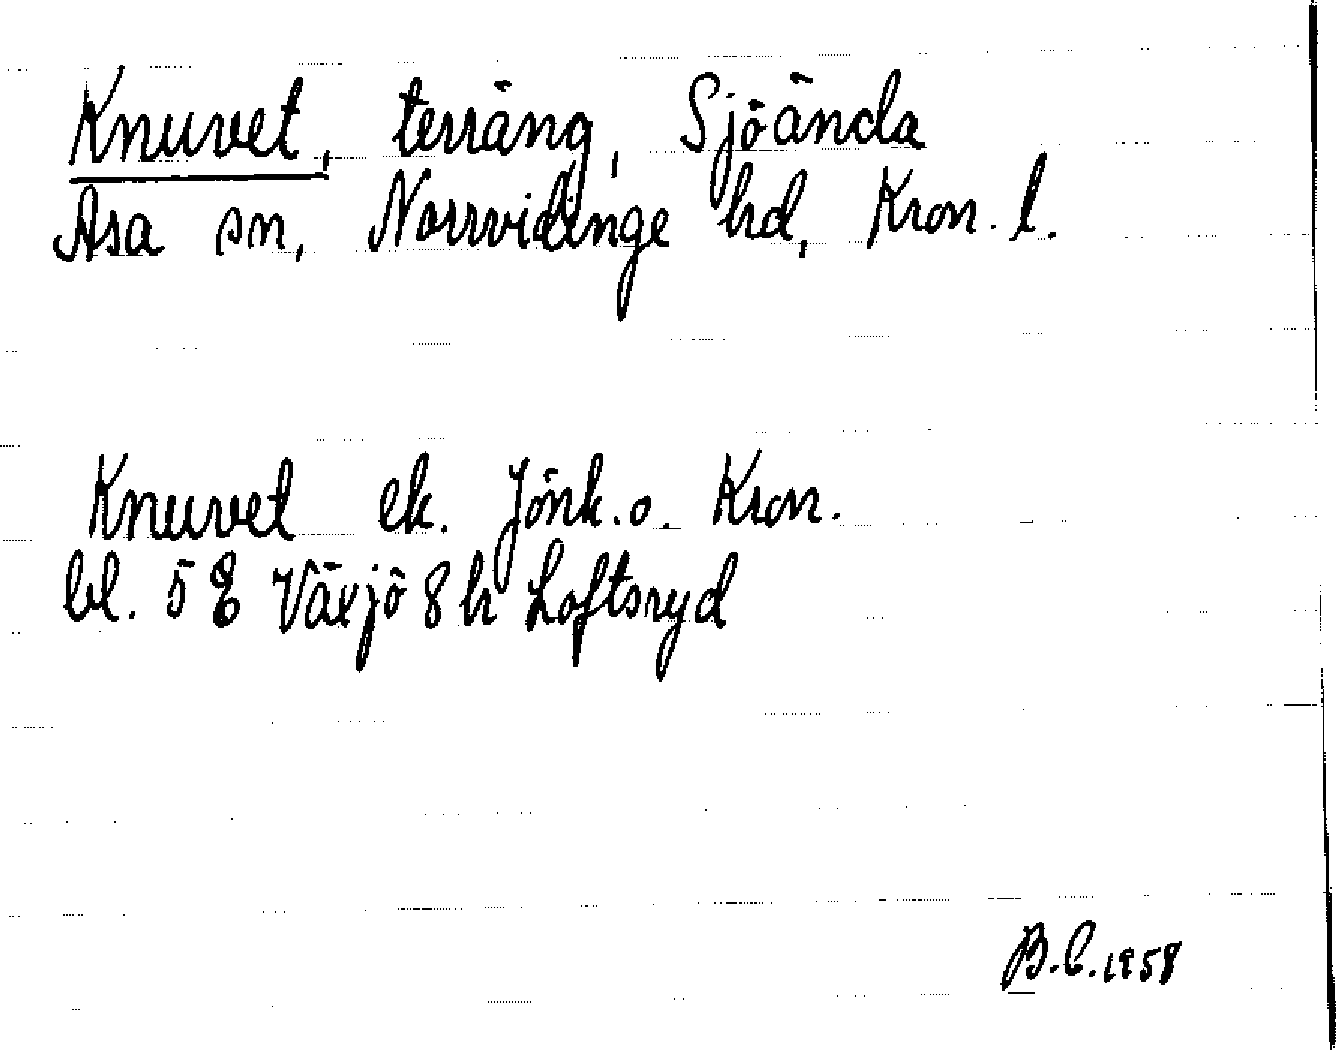 Knuvet, terräng, Sjöända
Asa sn, Norrvidinge hd, Kron. l.
Knuvet ek. Jönk. o. Kron.
bl. 5 E Växjö 8 h Loftsryd
B.C. 1958